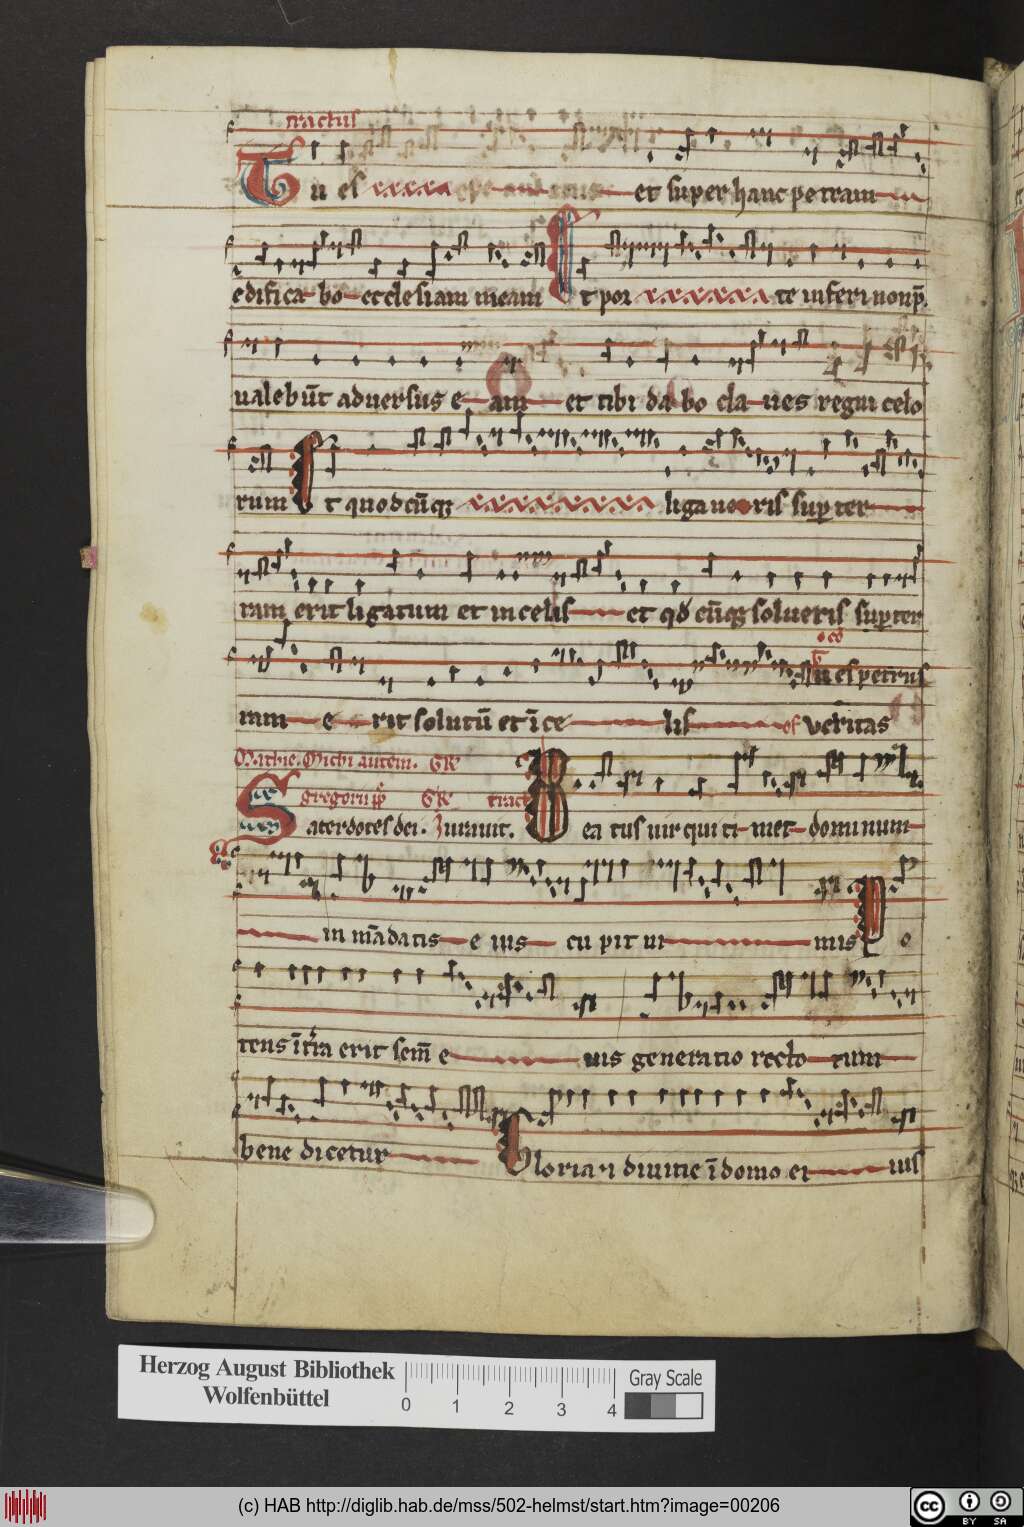 tractus
Tu es et super hanc petram
edificabo ecclesiam meam Et por te inferi non p̄
ualebūt aduersus eam et tibi dabo claues regni celo
rum Et quodcūq; ligaueris sup ter
ram erit ligatum et in celis et qd cūq; solueris sup ter
co
Tu es petrus
ram erit solutū et ī celis of ueritas
Mathie. Michi autem. GR
Sc̄i gregorii pp̄ GR tract
Sacerdotes dei. Iurauit. Beatus uir qui timet dominum
in mādatis eius cupit nimis Po
tens ī tr̄ra erit sem̄ eius generatio recto rum
benedicetur Gloria et diuitie ī domo eius
Herzog August Bibliothek
Wolfenbüttel
0 1 2 3 4
Gray Scale
(c) HAB http://diglib.hab.de/mss/502-helmst/start.htm?image=00206
cc BY SA